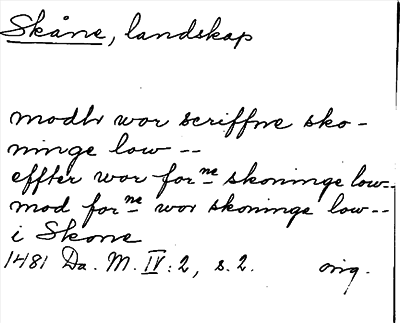 Skåne, landskap
modh wor scriffne sko-
ninge low --
effter wor forne skoninge low--
mod forne wor skoninge low--
i Skone
1481 Da. M. IV: 2, s. 2. orig.